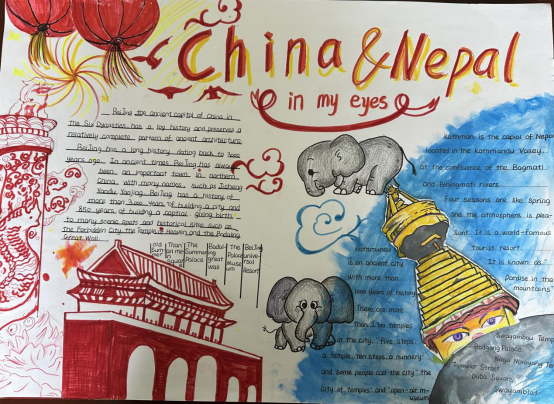 China & Nepal
in my eyes
BeiJing the ancient capital of China in
The Six Dynasties has a log history and preserved a
relatively complete pattern of ancient architecture
BeiJing has a long history dating back to 3000
years ago. In ancient times BeiJing has always
been an important town in northern
China with many names such as Jicheng
Yandu Yanjing. BeiJing has a history of
more than 3,000 years of building a city and
850 years of building a capital giving birth
to many scenic spots and historical sites such as
the Forbidden City, the Temple of Heaven and the Badaling
Great Wall.
The Summer Palace
The Palace Museum
BeiJing Universal Resort
kathman is the capital of Nepal
located in the Kathmandu Valley,
at the confluence of the Bagmati
and Bihengmati rivers
Four seasons are like spring
and the atmosphere is plea-
sant. It is a world-famous
tourist resort.
It is known as "
Pardise in the
mountains"
kathmandu
is an ancient city
with more than
years of history
There are more
than 2 temples
in the city. "five steps
a temple, ten steps a nunnery"
and some people call the city "the
city of temples" and "open-air m-
useum
Swayambhu Temp
Square